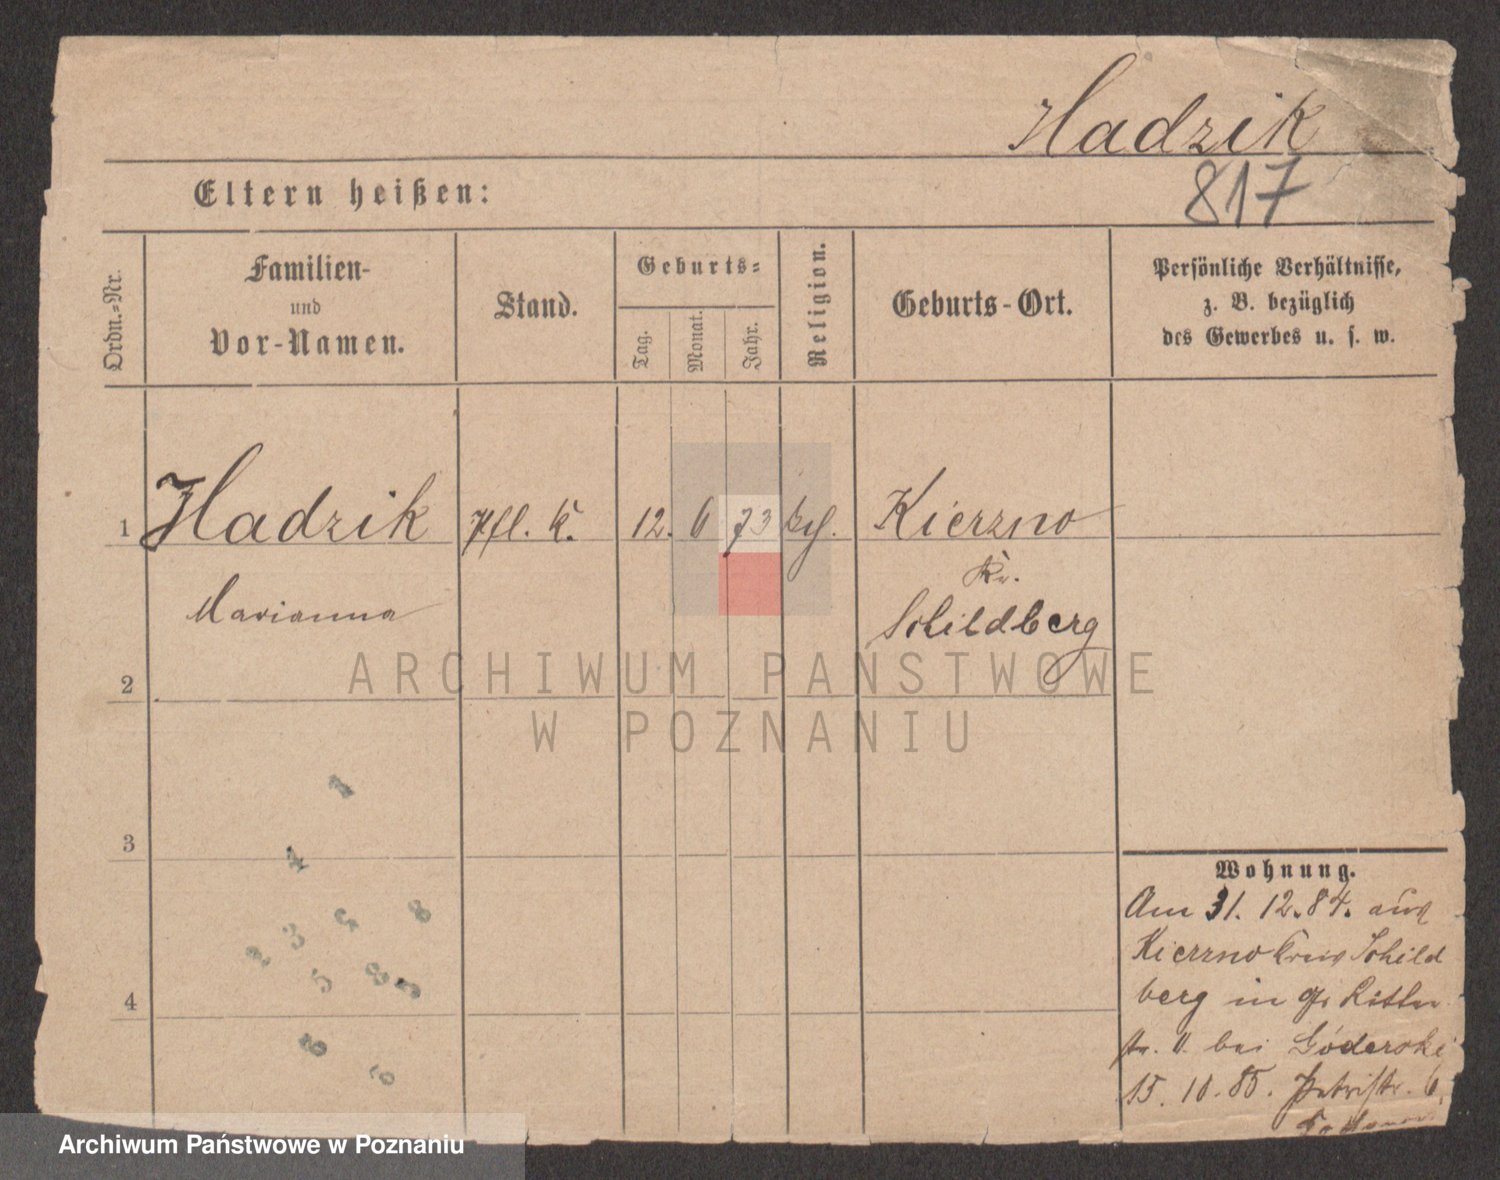 Hadzik
817
Eltern heißen:
Ordn.=Nr.
Familien-
und
Vor-Namen.
Stand.
Geburts=
Tag.
Monat.
Jahr.
Religion.
Geburts-Ort.
Persönliche Verhältnisse,
z. B. bezüglich
des Gewerbes u. s. w.
1 Hadzik Pfl. K. 12. 6 73 Kierzno
Kr.
Marianna Schildberg
2
ARCHIWUM PAŃSTWOWE
W POZNANIU
1
3
4
Wohnung.
Am 31. 12. 84. aus
Kierzno Kreis Schild
berg in Gr Ritter
str. bei Goderski
15. 10. 85. Petristr. 6,
8
3
2
5
8
3
4
6
5
Archiwum Państwowe w Poznaniu